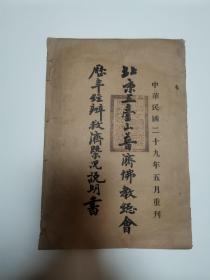 中華民國二十九年五月重刊
北京五臺山普濟佛教總會
歷年經辦救濟槩況說明書